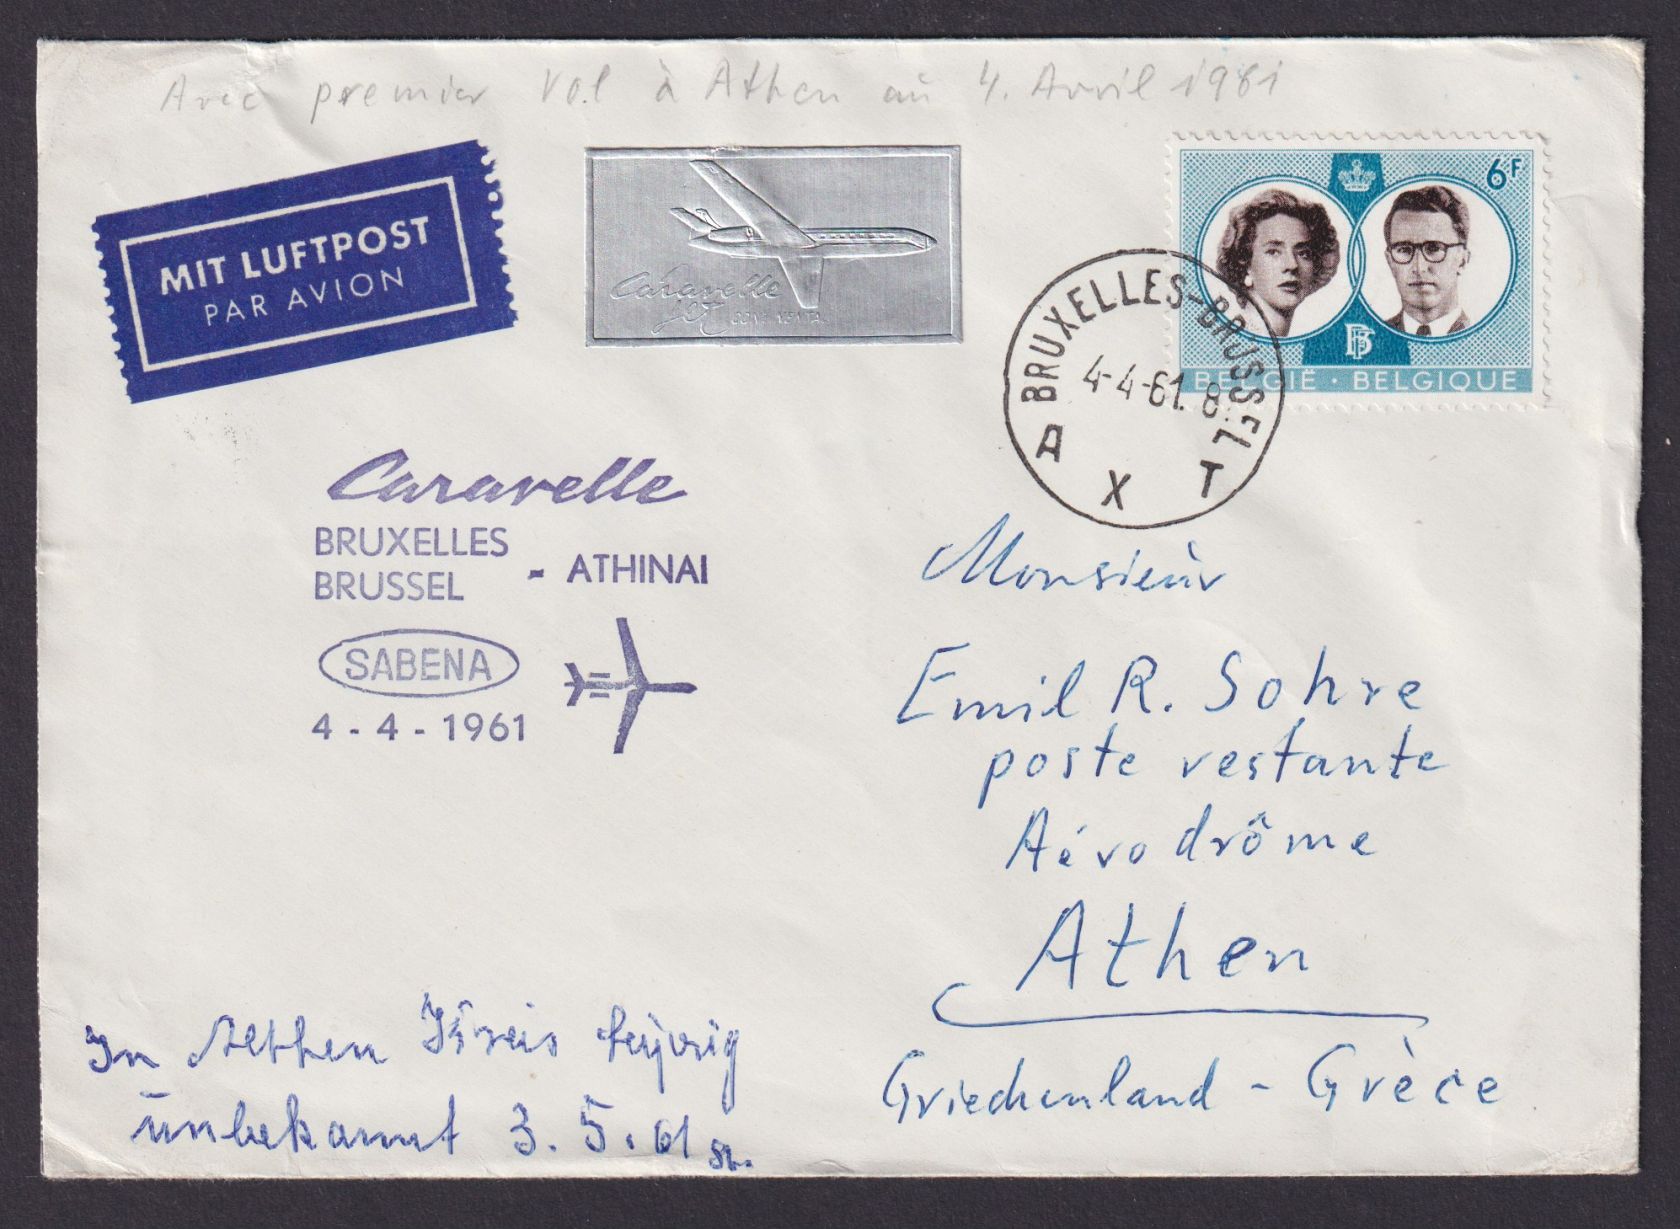 Avec premier vol à Athen au 4. Avril 1961
MIT LUFTPOST
PAR AVION
Caravelle
Jet CONTINENTAL
6F
BELGIË · BELGIQUE
BRUXELLES-BRUSSEL
4-4-61. 8
A X T
Caravelle
BRUXELLES
BRUSSEL - ATHINAI
SABENA
4 - 4 - 1961
Monsieur
Emil R. Sohre
poste restante
Aérodrôme
Athen
Griechenland - Grèce
In Althen Kreis Leipzig
unbekannt 3. 5. 61